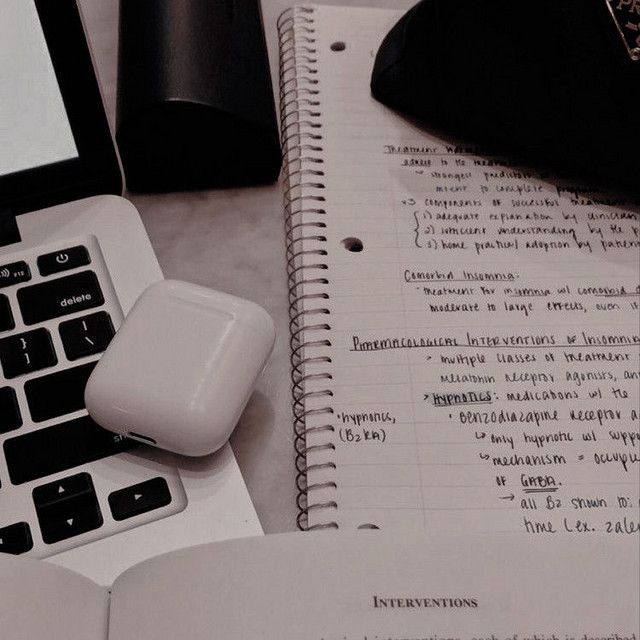 F12
delete
Treatment
adhere to the
→ strongest predictor
ment to complete
3 components of successful treatment
1) adequate explanation by clinician
2) sufficient understanding by the p
3) home practice/adoption by patien
Comorbid Insomnia:
• treatment for insomnia w/ comorbid d
moderate to large effects, even
Pharmacological Interventions of Insomnia
• multiple classes of treatment
melatonin receptor agonists, an
> Hypnotics: medications w/ the
• hypnotics,
(BzRA)
• Benzodiazapine Receptor a
↳ only hypnotic w/ supp
↳ mechanism = occupy
of GABA.
→ all Bz shown to:
time (ex. zale
INTERVENTIONS
interventions, each of which is described